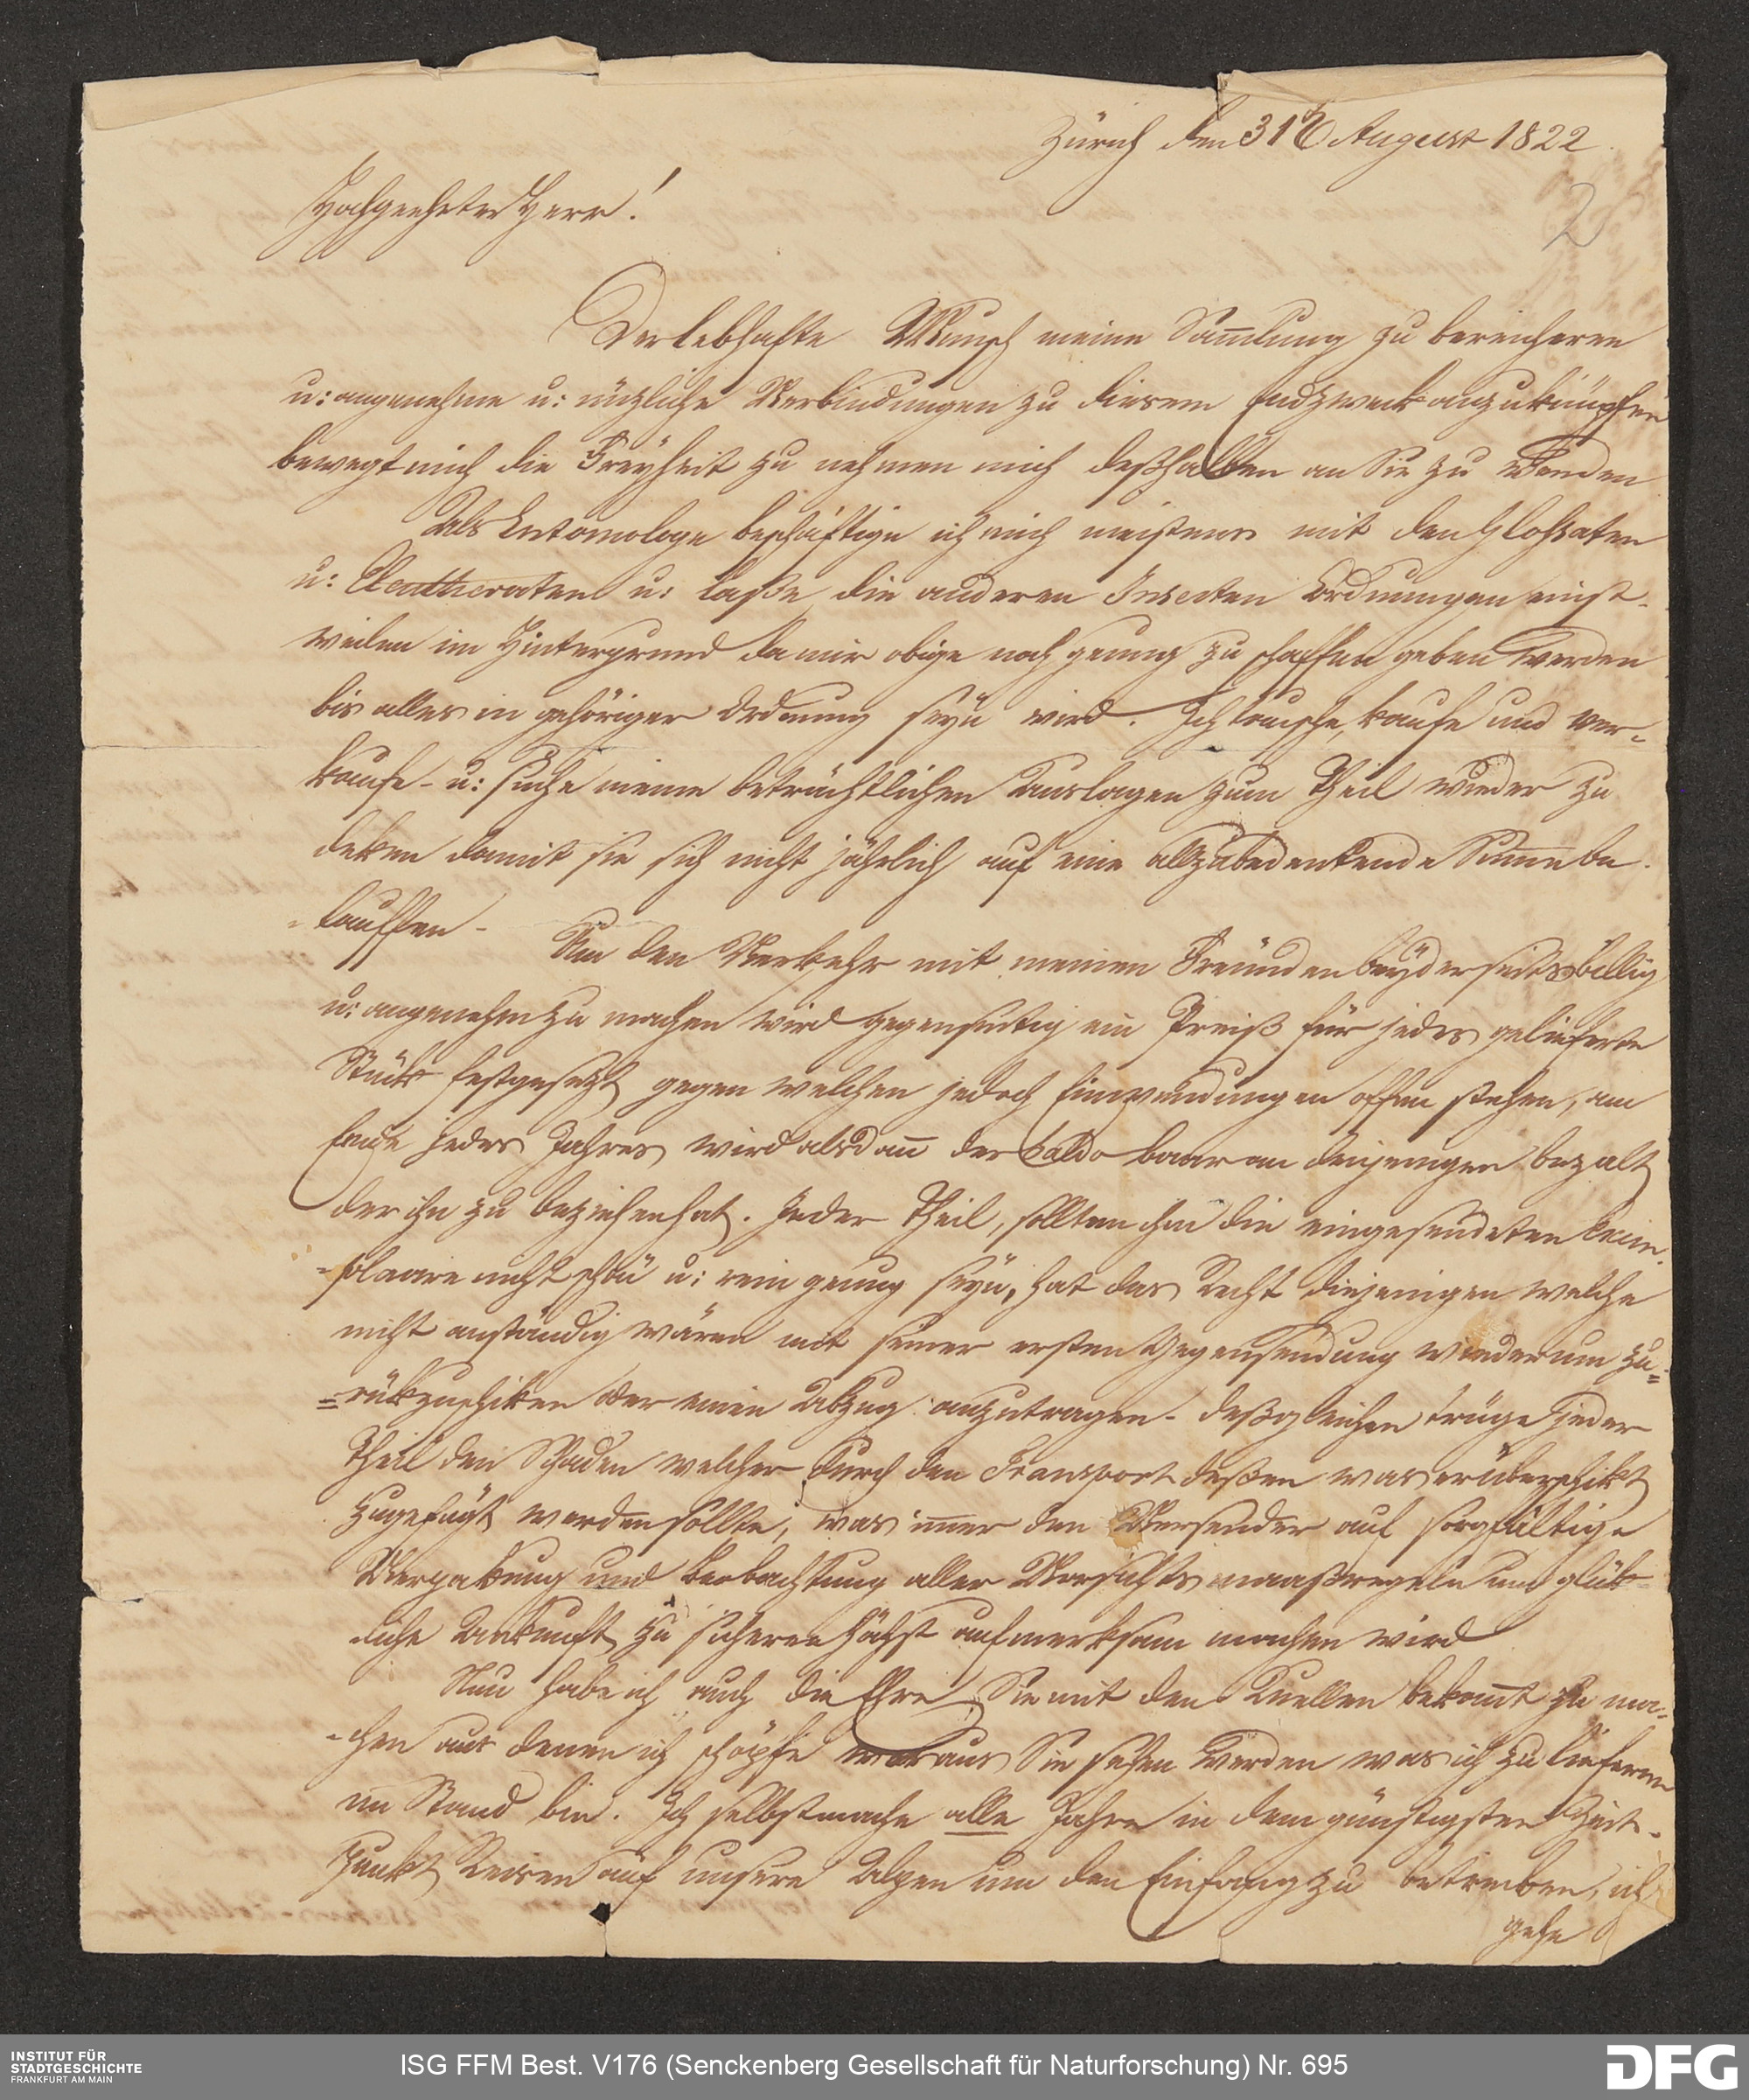 Zürich den 31t August 1822.
2
Hochgeehrter Herr!
Der lebhafte Wunsch meine Sam̄lung zu bereicheren
u: angenehme u: nüzliche Verbindungen zu diesem Endzweck anzuknüpfen
bewegt mich die Freyheit zu nehmen mich deßhalben an Sie zu wenden
Als Entomologe beschäftige ich mich meistens mit den Glossaten
u: Eleutheraten u: laße die anderen Insecten Ordnungen einst-
weilen im Hintergrund da mir obige noch genug zu schaffen geben werden
bis alles in gehöriger Ordnung seyn wird. Ich tausche, kaufe und ver-
kaufe - u: suche meine beträchtlichen Auslagen zum Theil wieder zu
deken damit sie sich nicht jährlich auf eine allzubedeutende Sum̄e be-
lauffen -
Um den Verkehr mit meinen Freünden beyderseits billig
u: angenehm zu machen wird gegenseitig ein Preiß für jedes gelieferte
Stück festgesezt gegen welchen jedoch Einwendungen offen stehen, am
Ende jedes Jahres wird alsdan̄ der Saldo baar an denjenigen bezalt
der ihn zu beziehen hat. Jeder Theil, sollten ihm die eingesendeten Exem-
-plaare nicht schön u: rein genug seyn, hat das Recht diejenigen welche
nicht anständig wären mit seiner ersten Gegensendung wiederum zu=
=rükzuschiken oder einen Abzug anzutragen - deßgleichen trüge jeder
Theil den Schaden welcher durch den Transport deßen was er überschikt
zugefügt werden sollte, was im̄er den Versender auf sorgfältige
Verpakung und Beobachtung aller Vorsichtsmaaßregeln um glük-
liche Ankunft zu sicheren höchst aufmerksam machen wird
Nun habe ich auch die Ehre Sie mit den Quellen bekan̄t zu ma-
-chen aus denen ich schöpfe woraus Sie sehen werden was ich zu lieferen
im Stand bin. Ich selbst mache alle Jahre in dem günstigsten Zeit-
punkt Reisen auf unsere Alpen um den Einfang zu betreiben, ich
gehe
INSTITUT FÜR
STADTGESCHICHTE
FRANKFURT AM MAIN
ISG FFM Best. V176 (Senckenberg Gesellschaft für Naturforschung) Nr. 695
DFG